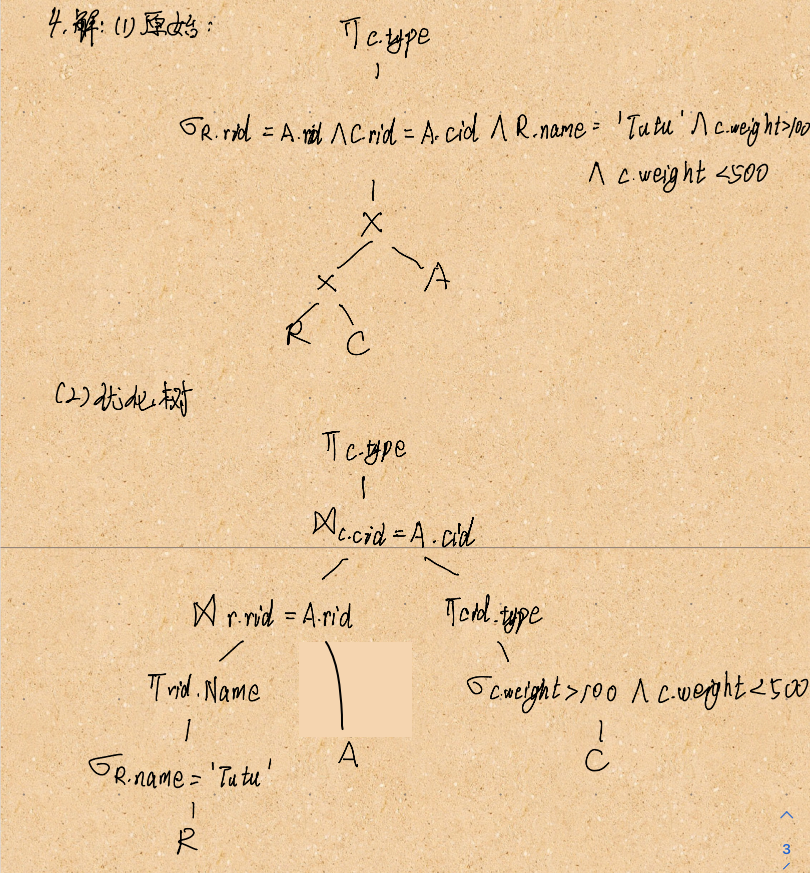 4.解:(1)原始:
π c.type
σ R.rid = A.rid ∧ C.rid = A.cid ∧ R.name = 'Tutu' ∧ c.weight>100
∧ c.weight <500
×
× A
R C
(2) 优化树
π c.type
⋈ c.cid = A.cid
⋈ r.rid = A.rid π cid.type
π rid.Name σ c.weight>100 ∧ c.weight<500
A C
σ R.name = 'Tutu'
R
3